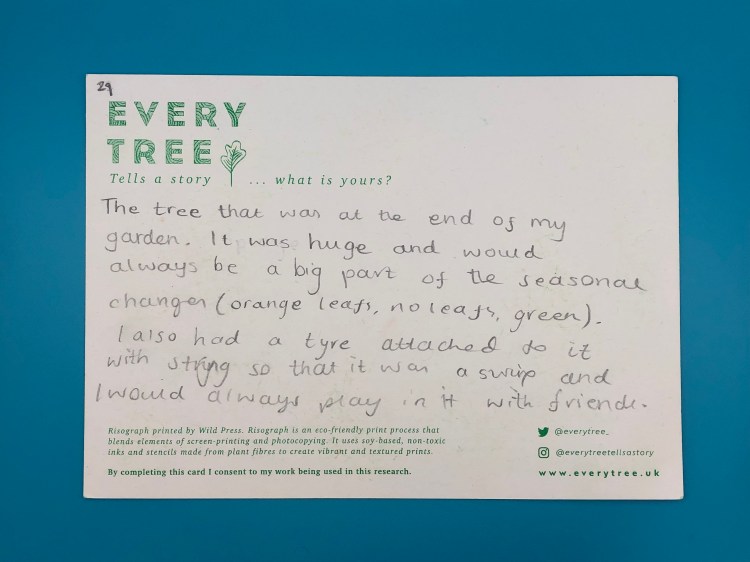 29
EVERY
TREE
Tells a story ... what is yours?
The tree that was at the end of my
garden. It was huge and would
always be a big part of the seasonal
changes (orange leafs, no leafs, green).
I also had a tyre attached to it
with string so that it was a swing and
I would always play in it with friends.
Risograph printed by Wild Press. Risograph is an eco-friendly print process that
blends elements of screen-printing and photocopying. It uses soy-based, non-toxic
inks and stencils made from plant fibres to create vibrant and textured prints.
By completing this card I consent to my work being used in this research.
@everytree_
@everytreetellsastory
www.everytree.uk